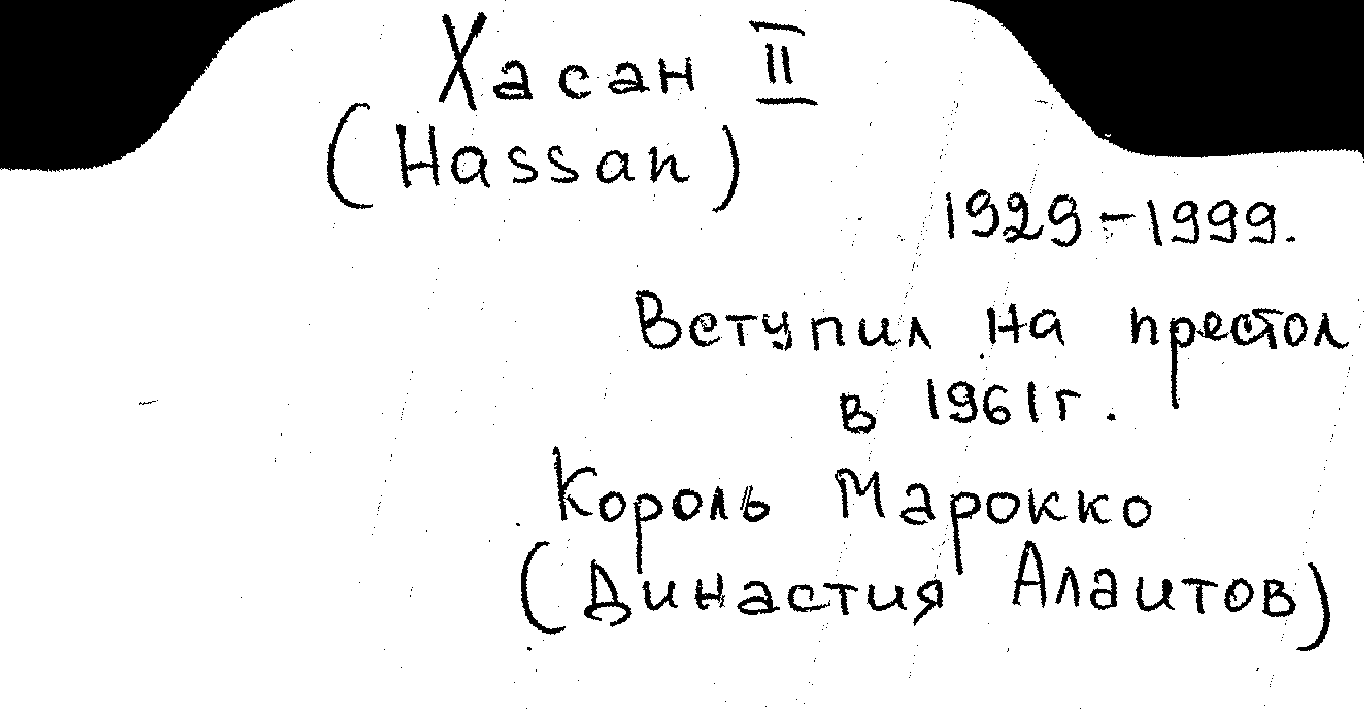 Хасан II
(Hassan)
1929-1999.
Вступил на престол
в 1961г.
Король Марокко
(Династия Алаитов)